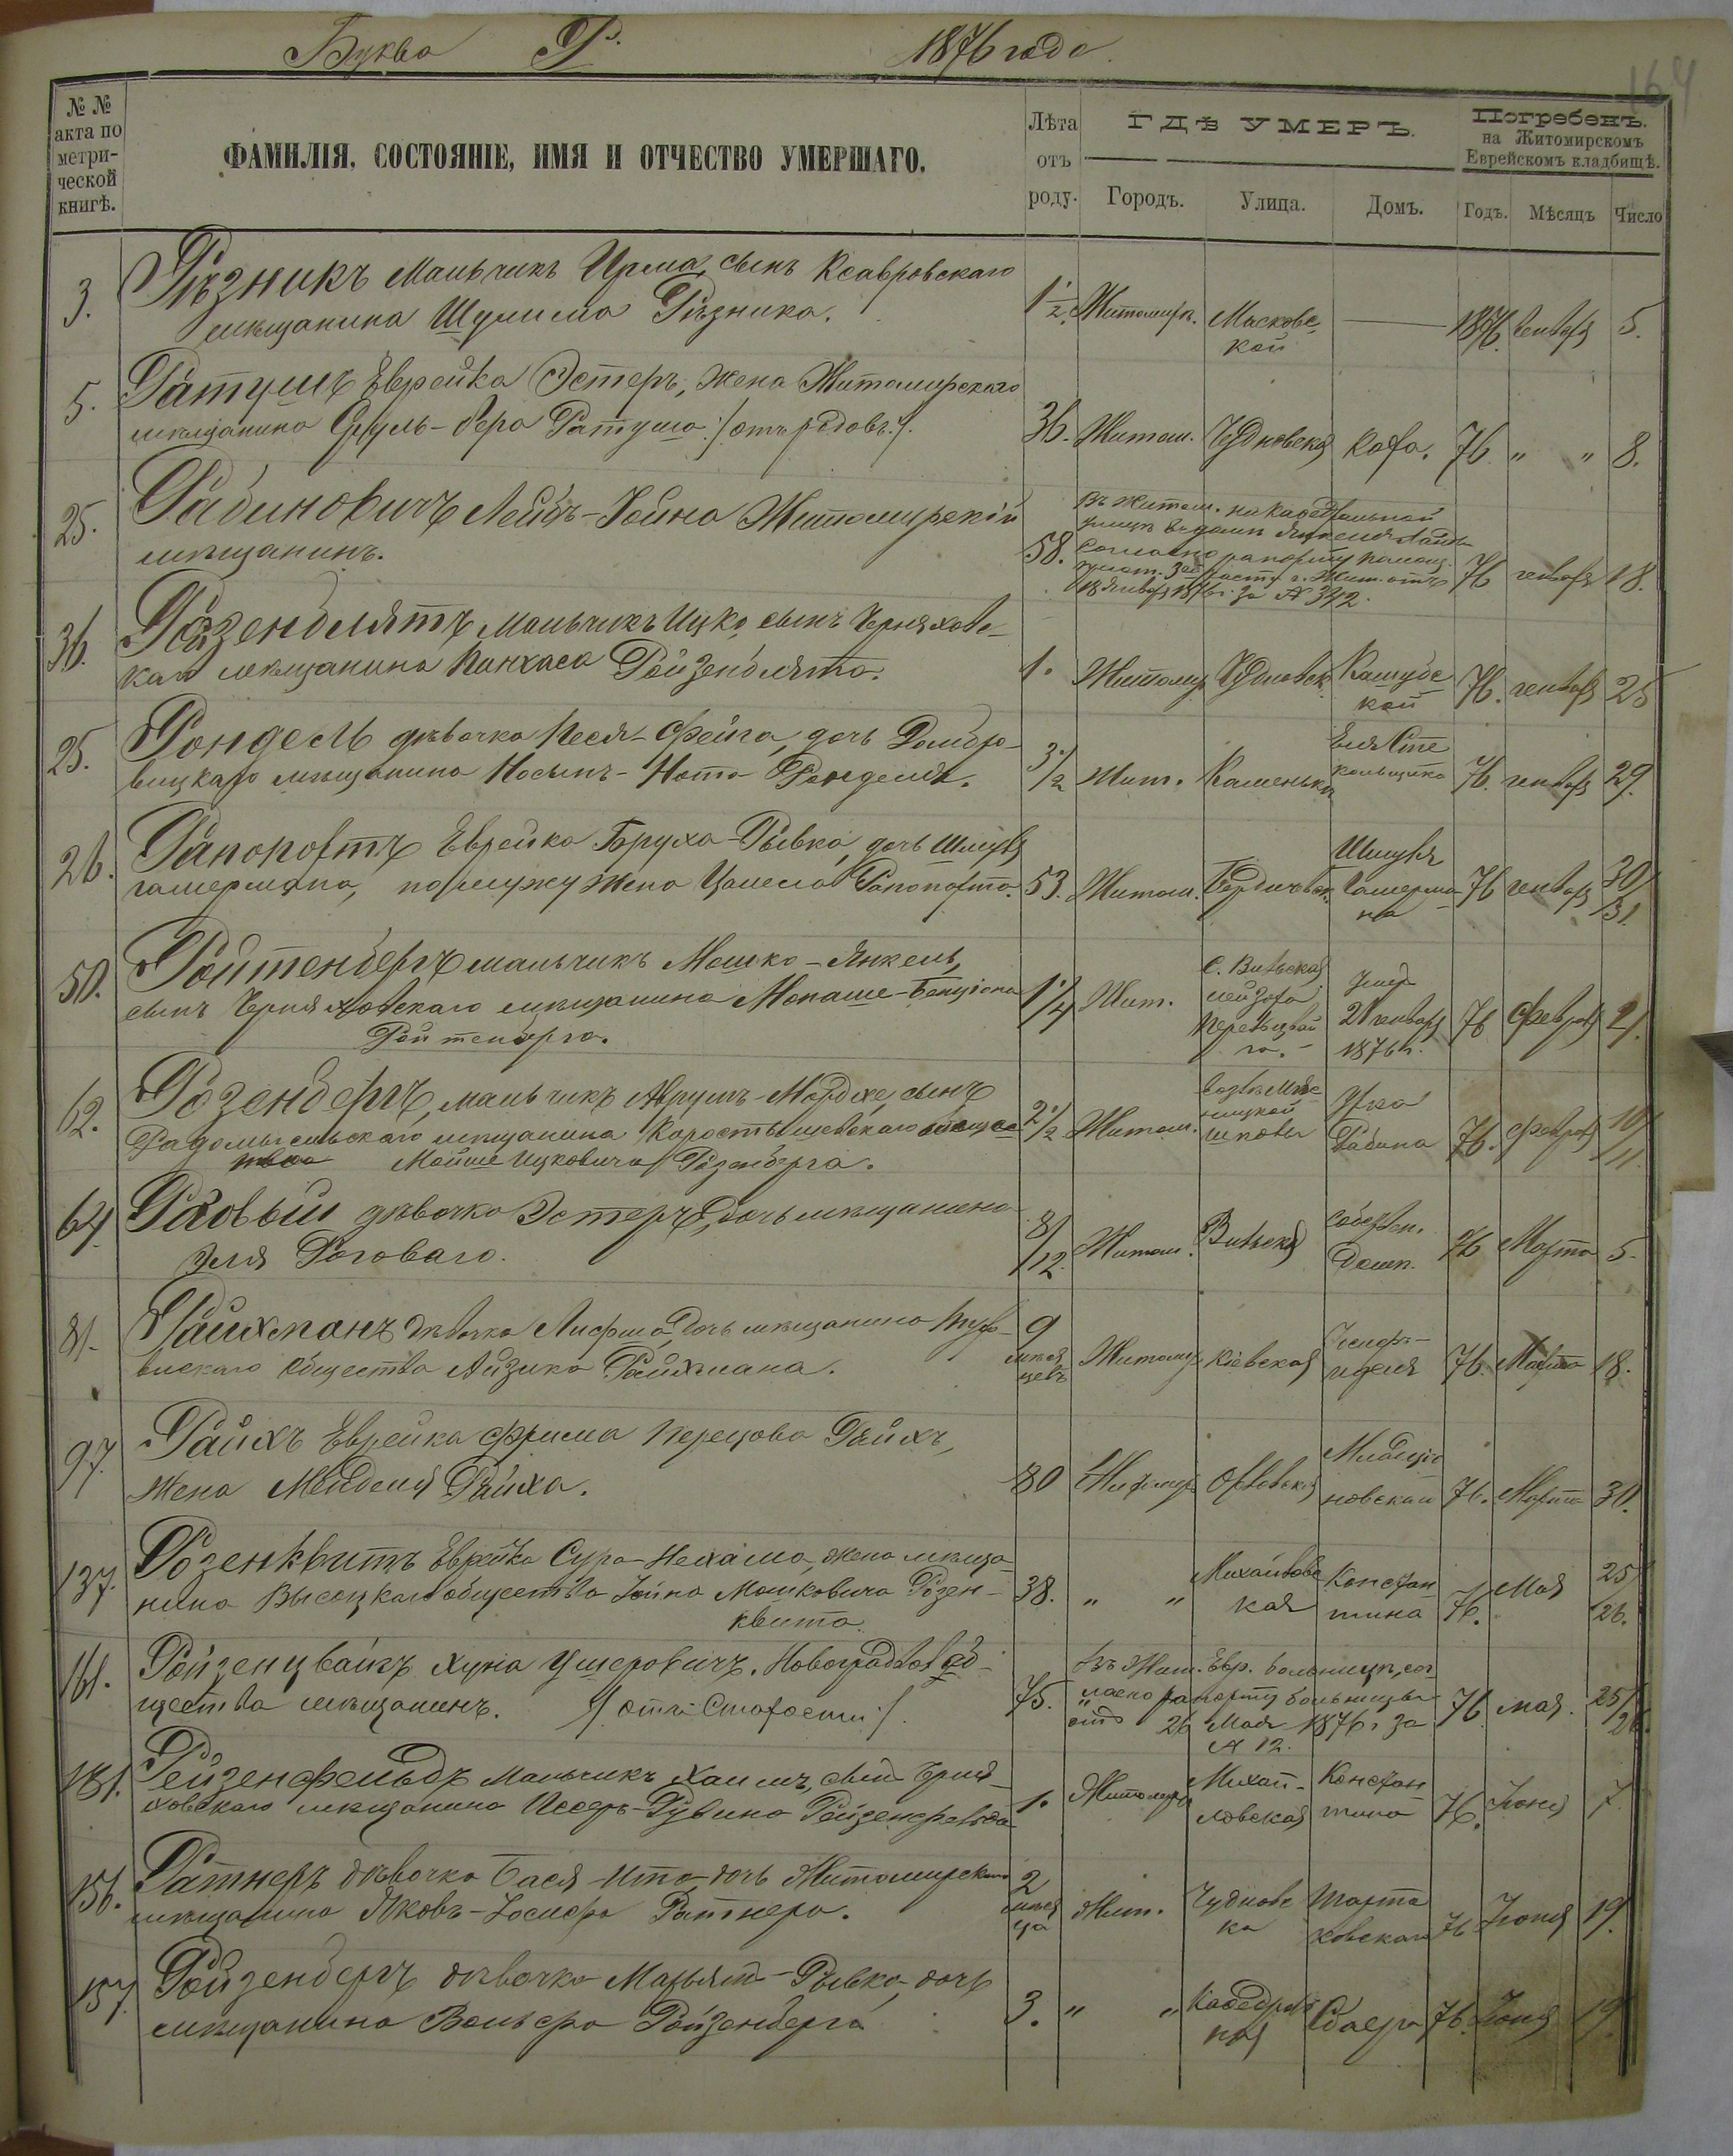 Буква Р. 1876 года.
164
№ № акта по метрической книгѣ.
ФАМИЛІЯ, СОСТОЯНІЕ, ИМЯ И ОТЧЕСТВО УМЕРШАГО.
Лѣта отъ роду.
ГДѢ УМЕРЪ.
Городъ. Улица. Домъ.
Погребенъ.
на Житомирскомъ
Еврейскомъ кладбищѣ.
Годъ. Мѣсяцъ Число
3. Рѣзникъ мальчикъ сынъ
мѣщанина Шулима Рѣзника. 1/2. Житомиръ. 1876. генваря 5.
5. Ратушъ Еврейка Эстеръ, жена Житомирскаго
мѣщанина Сруль-Бера Ратуша /отъ родовъ/. 36. Житом. Чудновская 76 " " 8.
25. Рабиновичъ Лейбъ-Іойна Житомирскій
мѣщанинъ. 58. Въ Житом. на Кафедральной
улицѣ въ домѣ
согласно рапорту
г. Жит. отъ
18 Января 1876 г. за № 392. 76 генваря 18.
36. Розенблятъ мальчикъ Ицко, сынъ Черняховс-
каго мѣщанина Пинхаса Ройзенблята. 1. Житомир Чудновск. 76. генваря 25
25. Рондель дѣвочка Песя-Фейга, дочь Домбро-
вицкаго мѣщанина Носынъ-Нота Ронделя. 3/2 Жит. Каменька 76. генваря 29.
26. Рапопортъ Еврейка Бруха-Рывка, дочь Шмуля
гамермана, по мужу жена Рапопорта. 53. Житом. Бердичевск. Шмуля Гамермана 76 генваря 30/31.
50. Ройтенбергъ мальчикъ Мошко-Янкель,
сынъ Черняховскаго мѣщанина Монаше-Бенціона
Ройтенберга. 1/4 Жит. 1876 г. 76 Февраля
62. Розенбергъ, мальчикъ Аврумъ-Мордхе, сынъ
Радомысльскаго мѣщанина Коростышевскаго
Мойше Ицковича Розенберга. 2 1/2 Житом. Рабина 76. Февраля 10/11.
64. Роговый дѣвочка Эстеръ, дочь мѣщанина
Эля Роговаго. 8/12 Житом. Вильская собствен. домъ. 76 Марта 5.
81. Райхманъ дѣвочка дочь мѣщанина
общества Айзика Райхмана. 9 мѣсяцевъ Житомир Кіевская 76. Марта 18.
97. Райхъ Еврейка Фрима Перецова Райхъ,
жена Менделя Райха. 80 76. Марта 30.
137. Розенквитъ Еврейка Сура-Нехама, жена мѣща-
нина Высоцкаго общества Іойна Мошковича Розен-
квита. 38. " " Михайловс
кая Констан
тина 76. Мая 25/26.
161. Ройзенцвайгъ Хуна Ушеровичъ. об-
щества мѣщанинъ. /отъ старости/. 75. Въ Жит. Евр. больницѣ, сог-
ласно рапорту больницы
отъ 26 Мая 1876 г. за
№ 12. 76 мая. 25/26.
181. Рейзенфельдъ мальчикъ Хаимъ, сынъ Черня-
ховскаго мѣщанина Иссеръ-Рувина Рейзенфельда 1. Житомир Михай-
ловская Констан
тина 76. Іюня 7.
156. Ратнеръ дѣвочка Бася-Ита дочь Житомирскаго
мѣщанина Яковъ-Іосифа Ратнера. 2 мѣсяца Жит. Чудновс
ка 76 Іюня 19.
157. Ройзенбергъ дѣвочка Марьямъ-Рывка, дочь
мѣщанина Вольфа Ройзенберга 3. " " Кафедраль
ная 76. Іюня 19.